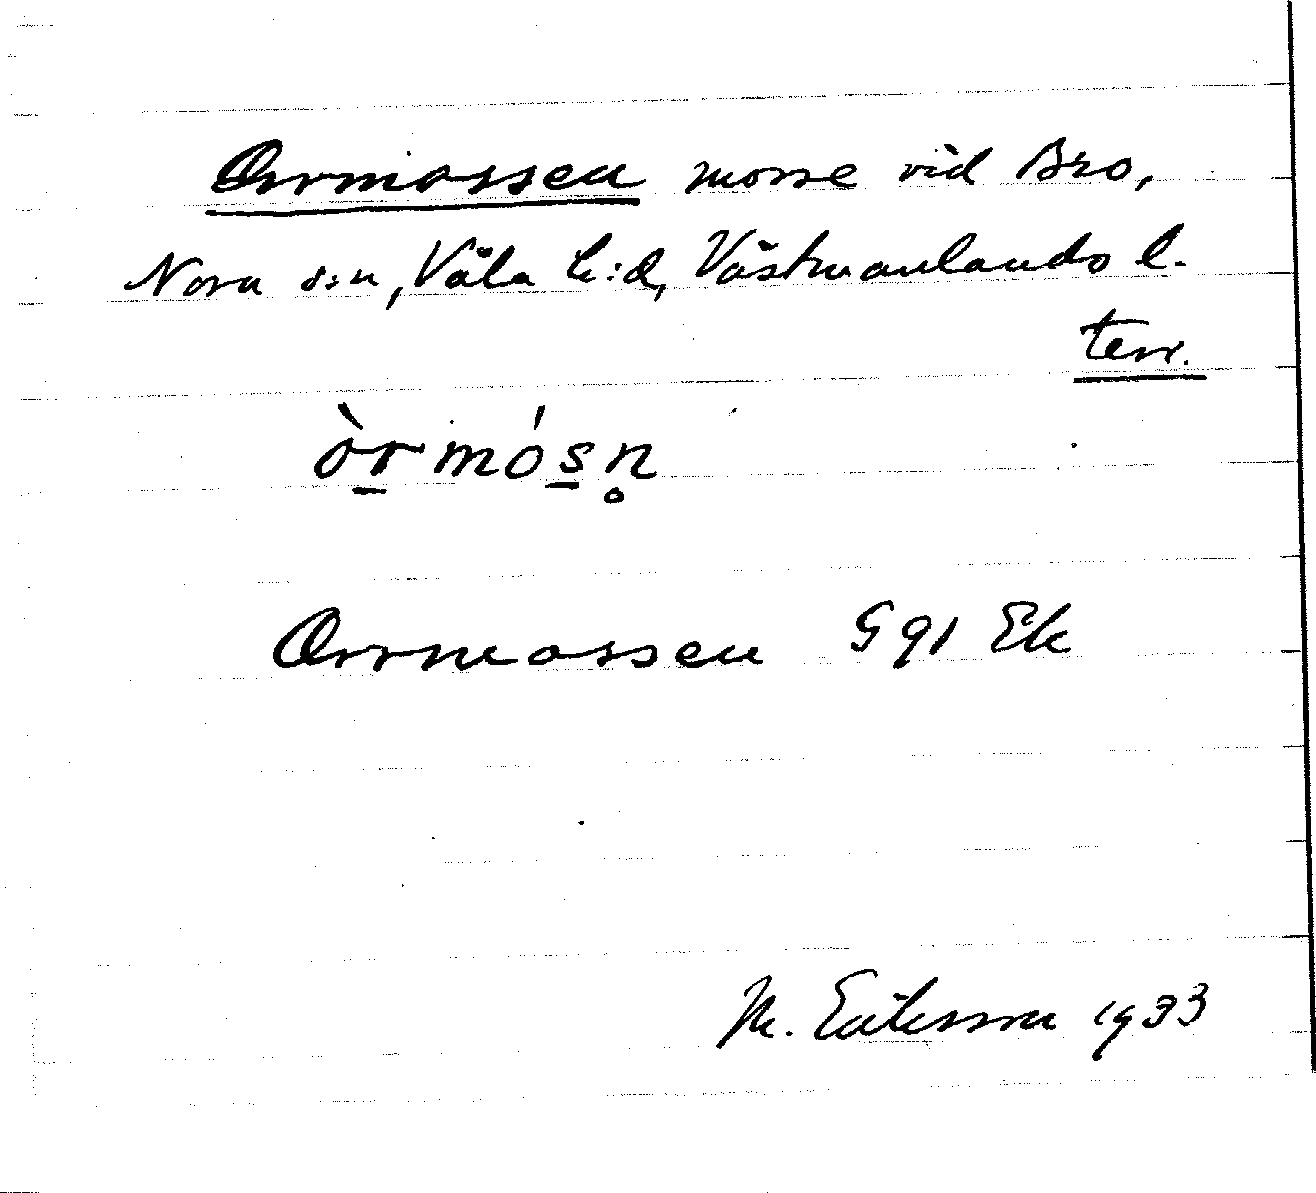 Orrmossen mosse vid Bro,
Nora s:n, Våla h:d, Västmanlands l.
terr.
òr̲mós̲n̥
Orrmossen G 91 Ek
M. Eriksson 1933